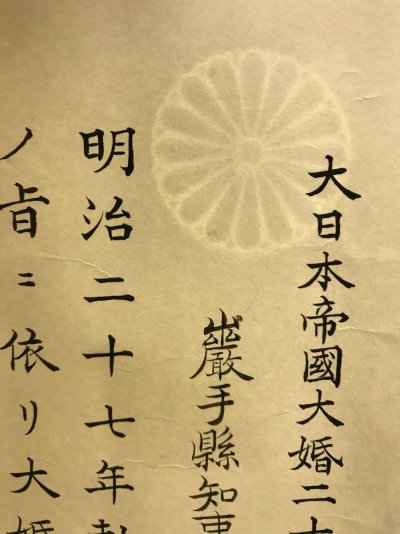 大日本帝國大婚二十
巖手縣知事
明治二十七年
ノ旨ニ依リ大婚